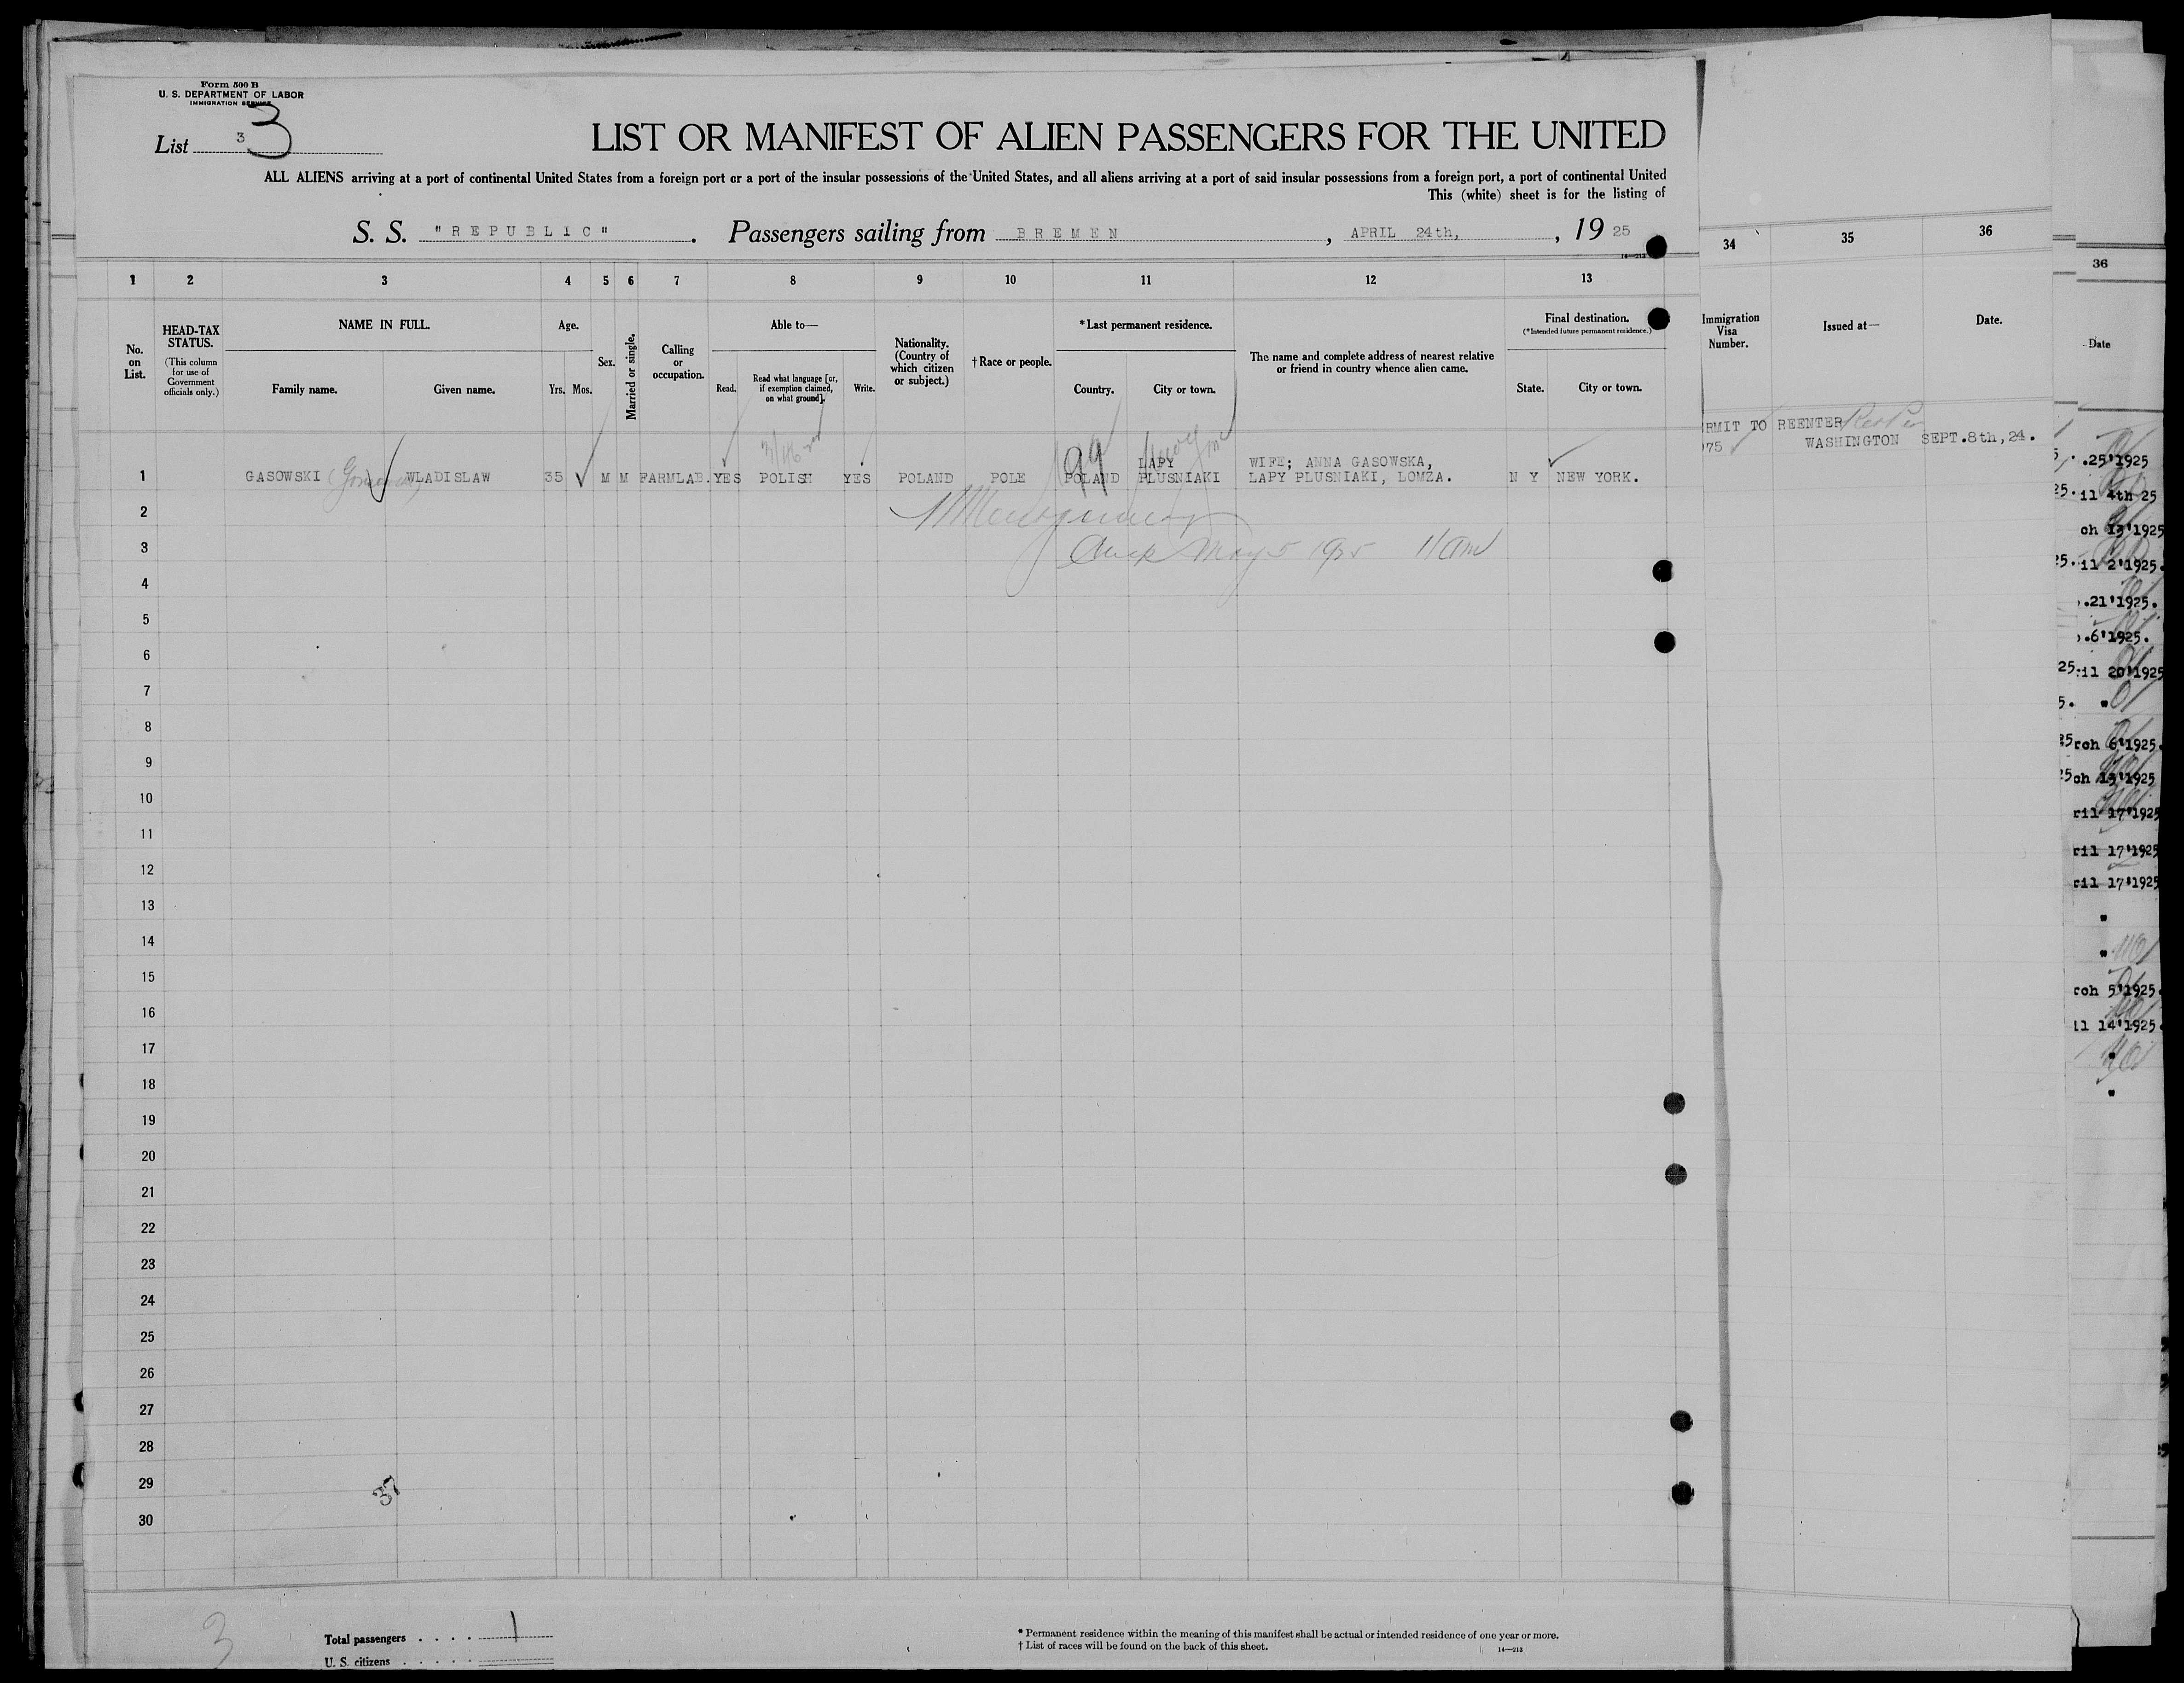 Form 500 B
U. S. DEPARTMENT OF LABOR
IMMIGRATION SERVICE
List 3 3
LIST OR MANIFEST OF ALIEN PASSENGERS FOR THE UNITED
ALL ALIENS arriving at a port of continental United States from a foreign port or a port of the insular possessions of the United States, and all aliens arriving at a port of said insular possessions from a foreign port, a port of continental United
This (white) sheet is for the listing of
S. S. "REPUBLIC". Passengers sailing from BREMEN, APRIL 24th, 1925
14—213
1 2 3 4 5 6 7 8 9 10 11 12 13 34 35 36
No. on List.
HEAD-TAX STATUS.
(This column for use of Government officials only.)
NAME IN FULL.
Family name. Given name.
Age.
Yrs. Mos.
Sex.
Married or single.
Calling or occupation.
Able to—
Read. Read what language [or, if exemption claimed, on what ground]. Write.
Nationality. (Country of which citizen or subject.)
†Race or people.
*Last permanent residence.
Country. City or town.
The name and complete address of nearest relative or friend in country whence alien came.
Final destination.
(*Intended future permanent residence.)
State. City or town.
Immigration Visa Number.
Issued at—
Date.
RMIT TO REENTER
075 WASHINGTON SEPT.8th,24.
1 GASOWSKI WLADISLAW 35 M M FARMLAB. YES POLISH YES POLAND POLE POLAND LAPY PLUSNIAKI WIFE; ANNA GASOWSKA, LAPY PLUSNIAKI, LOMZA. N Y NEW YORK.
99
2
3 May 5 1925 11 am
4
5
6
7
8
9
10
11
12
13
14
15
16
17
18
19
20
21
22
23
24
25
26
27
28
29
30
37
3
Total passengers . . . . 1
U. S. citizens . . . . .
* Permanent residence within the meaning of this manifest shall be actual or intended residence of one year or more.
† List of races will be found on the back of this sheet.
14—213
36
Date
.25'1925
il 4th 25
ch 13'1925
il 2'1925.
.21'1925.
.6'1925.
il 20'1925
"
rch 6'1925.
ch 13'1925
ril 17'1925
ril 17'1925
ril 17'1925
"
"
rch 5'1925.
il 14'1925.
"
"